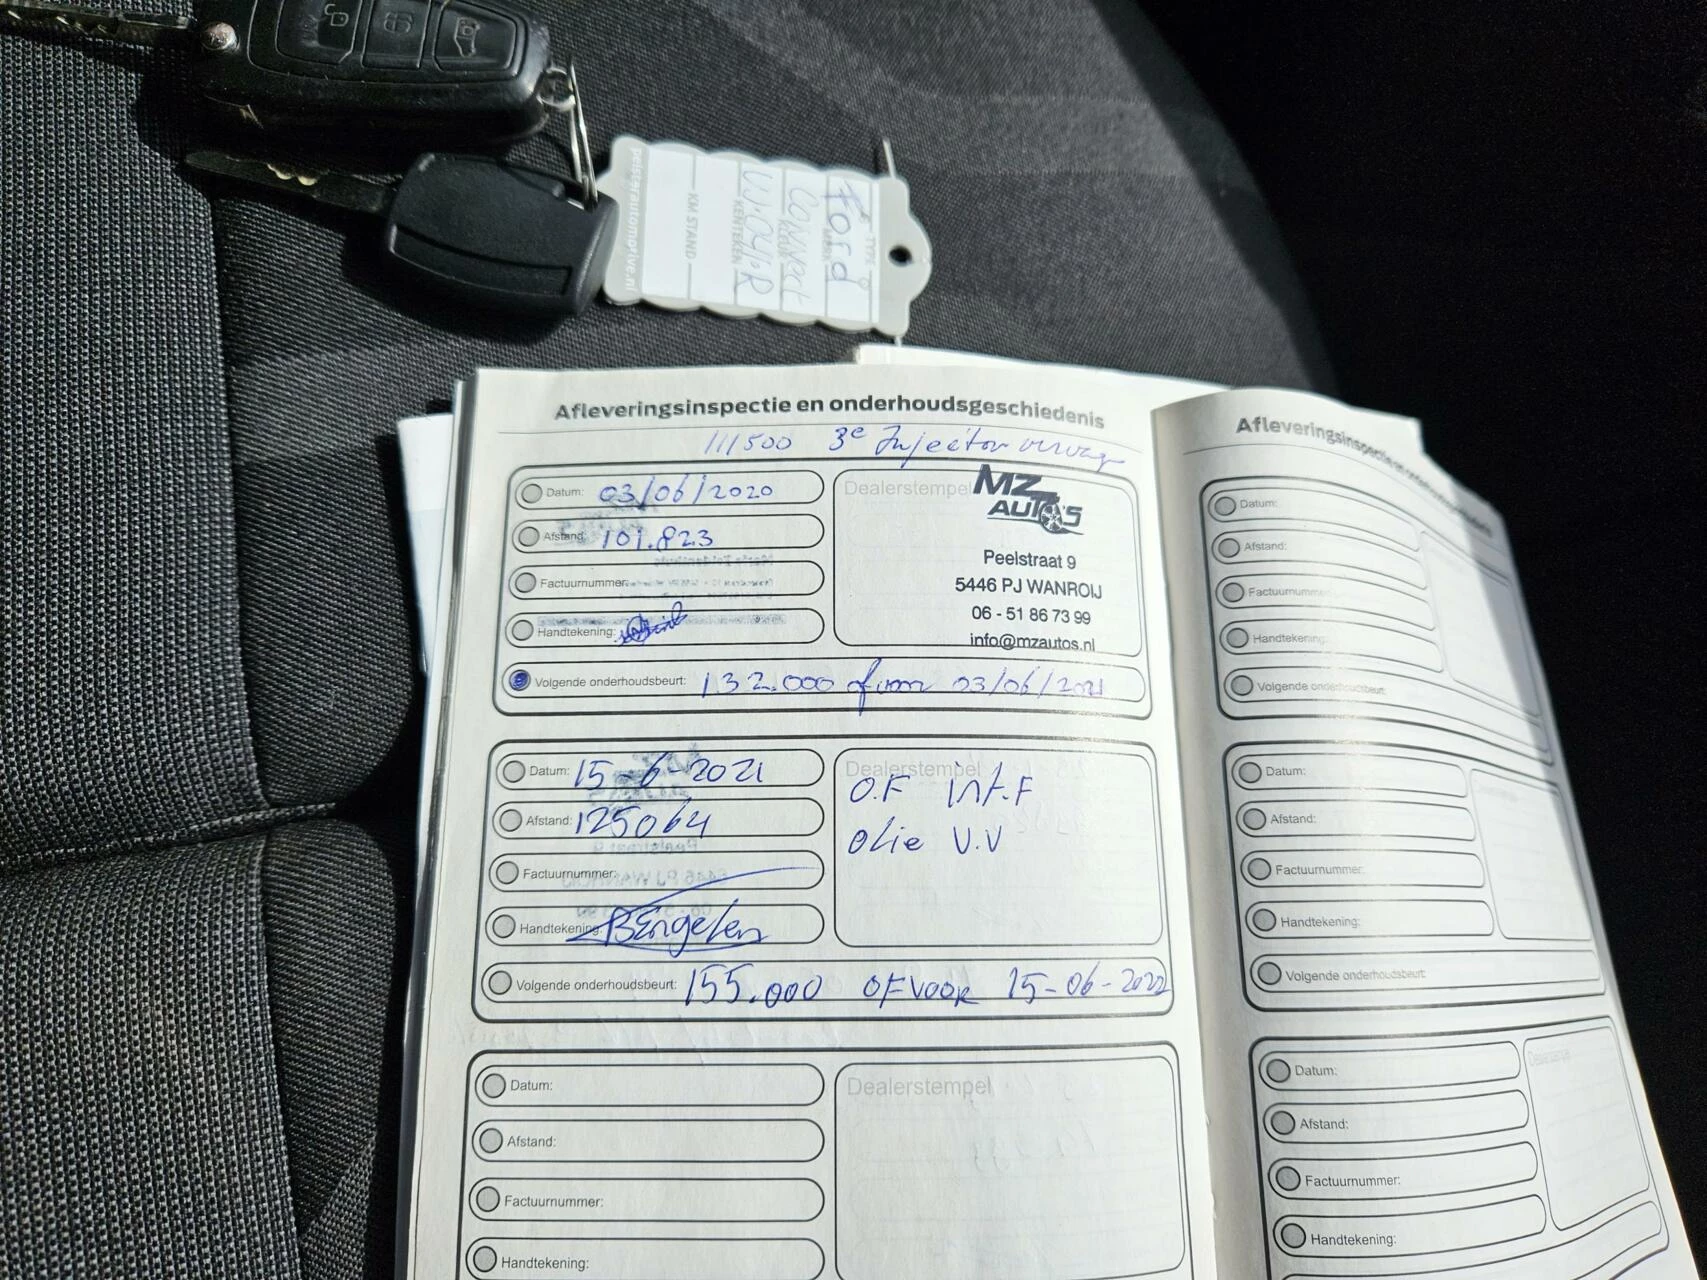 TYPE
Ford
Connect
KENTEKEN
KM STAND
pelsterautomotive.nl
Afleveringsinspectie en onderhoudsgeschiedenis
111500 3e Injector vervang
Datum: 03/06/2020
Afstand: 101.823
Factuurnummer:
Handtekening:
Dealerstempel
MZ
AUTO'S
Peelstraat 9
5446 PJ WANROIJ
06 - 51 86 73 99
info@mzautos.nl
Volgende onderhoudsbeurt: 132.000 of voor 03/06/2021
Datum: 15-6-2021
Afstand: 125064
Factuurnummer:
Handtekening: BEngelen
Dealerstempel
O.F int.F
olie V.V
Volgende onderhoudsbeurt: 155.000 OF VOOR 15-06-2022
Datum:
Afstand:
Factuurnummer:
Handtekening:
Dealerstempel
Afleveringsinspectie en
Datum:
Afstand:
Factuurnummer:
Handtekening:
Volgende onderhoudsbeurt:
Datum:
Afstand:
Factuurnummer:
Handtekening:
Volgende onderhoudsbeurt:
Datum:
Afstand:
Factuurnummer:
Handtekening: